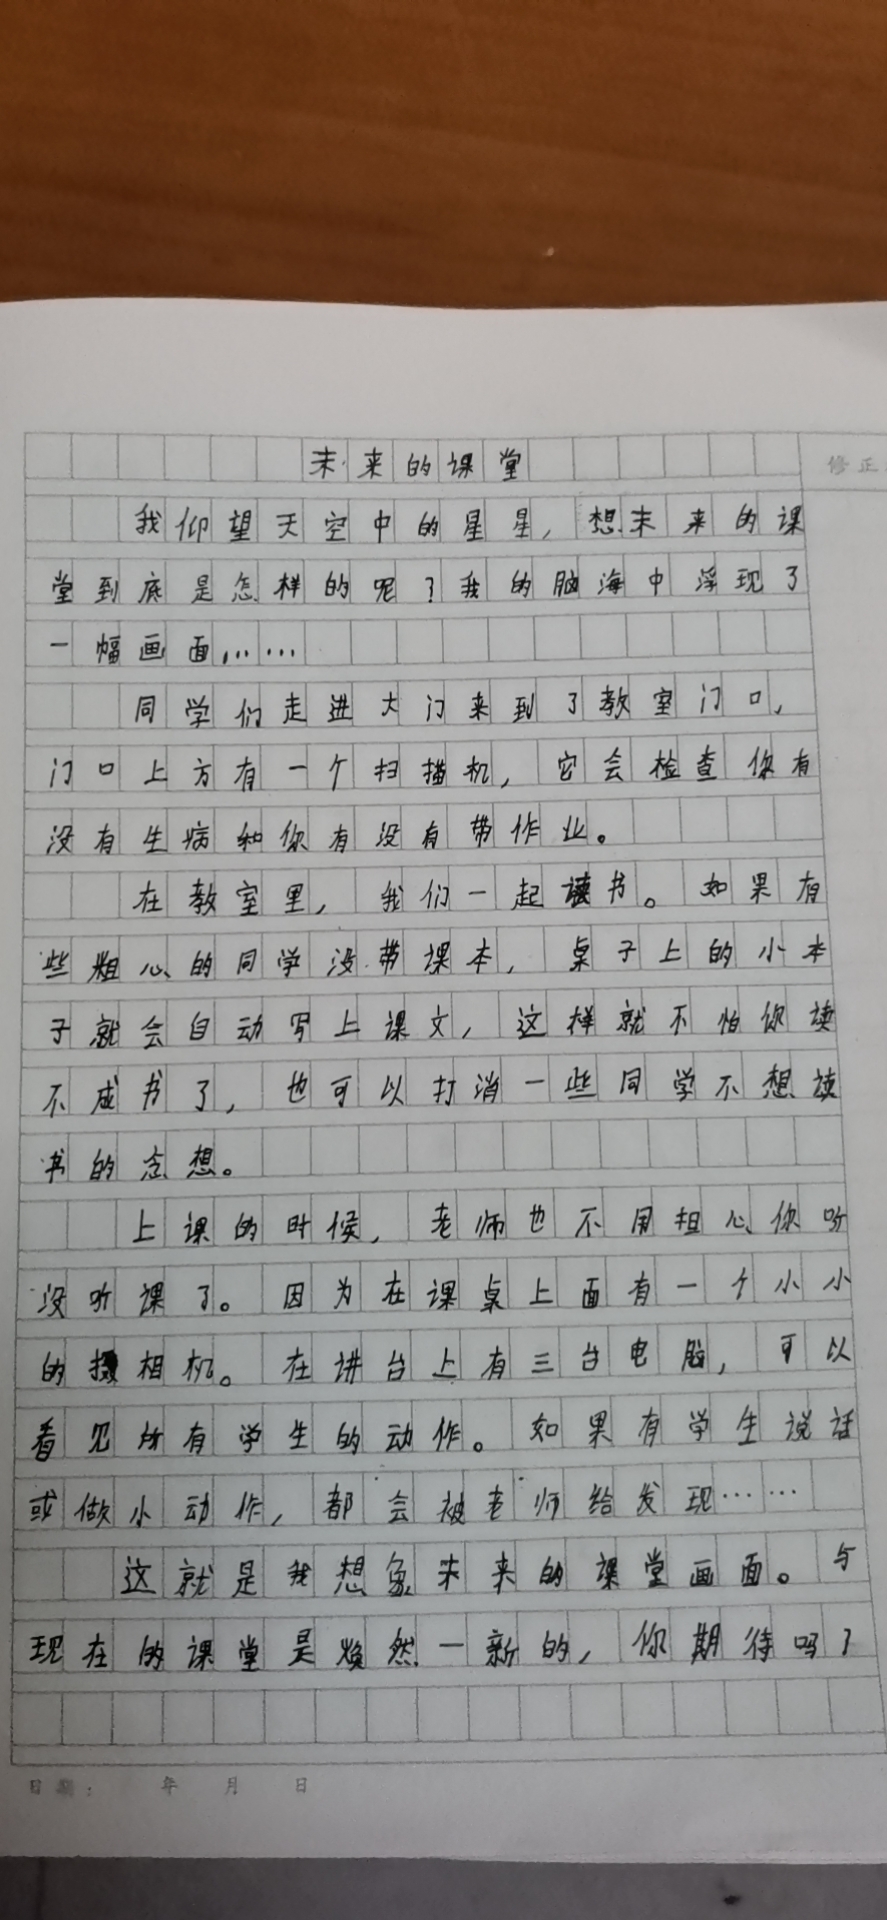 未来的课堂
修正
我仰望天空中的星星，想未来的课
堂到底是怎样的呢？我的脑海中浮现了
一幅画面，……
同学们走进大门来到了教室门口，
门口上方有一个扫描机，它会检查你有
没有生病和你有没有带作业。
在教室里，我们一起读书。如果有
些粗心的同学没带课本，桌子上的小本
子就会自动写上课文，这样就不怕你读
不成书了，也可以打消一些同学不想读
书的念想。
上课的时候，老师也不用担心你听
没听课了。因为在课桌上面有一个小小
的摄相机。在讲台上有三台电脑，可以
看见所有学生的动作。如果有学生说话
或做小动作，都会被老师给发现……
这就是我想象未来的课堂画面。与
现在的课堂是焕然一新的，你期待吗？
日期： 年 月 日